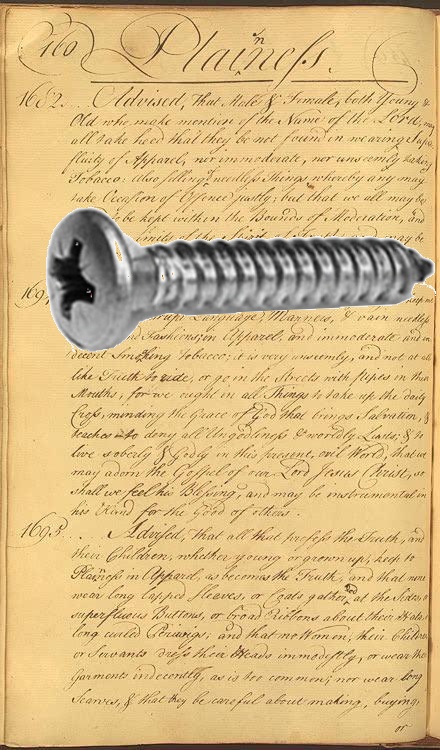 160 Plainness.
1682... Advised, That Male & Female, both Young &
Old who make mention of the Name of the Lord, may
all take heed that they be not found in wearing Supr
fluity of Apparel, nor immoderate, nor unseemly taking
Tobacco: also selling needless Things whereby any may
take Occasion of Offence justly; but that we all may
to be kept within the Bounds of Moderation, and
may be
169
Language, Manners, & vain needless
Fashions in Apparel, and immoderate and in
decent Smoking Tobacco; it is very unseemly, and not at all
like Truth to ride, or go in the Streets with pipes in their
Mouths, for we ought in all Things to take up the daily
Cross, minding the Grace of God that brings Salvation, &
teaches to deny all Ungodliness & worldly Lusts, & to
live soberly & Godly in this present, evil World, that we
may adorn the Gospel of our Lord Jesus Christ, so
shall we feel his Blessing, and may be instrumental in
his Hand for the Good of others.
1695... Advised, That all that profess the Truth, and
their Children, whether young or grown up, keep to
Plainness in Apparel, as becomes the Truth, and that none
wear long lapped Sleeves, or Coats gather'd at the Sides, or
superfluous Buttons, or broad Ribbons about their Hats, or
long curled Periwigs, and that no Women, their Children
or Servants dress their Heads immodestly, or wear their
Garments indecently, as is too common; nor wear long
Scarves, & that they be careful about making, buying,
or